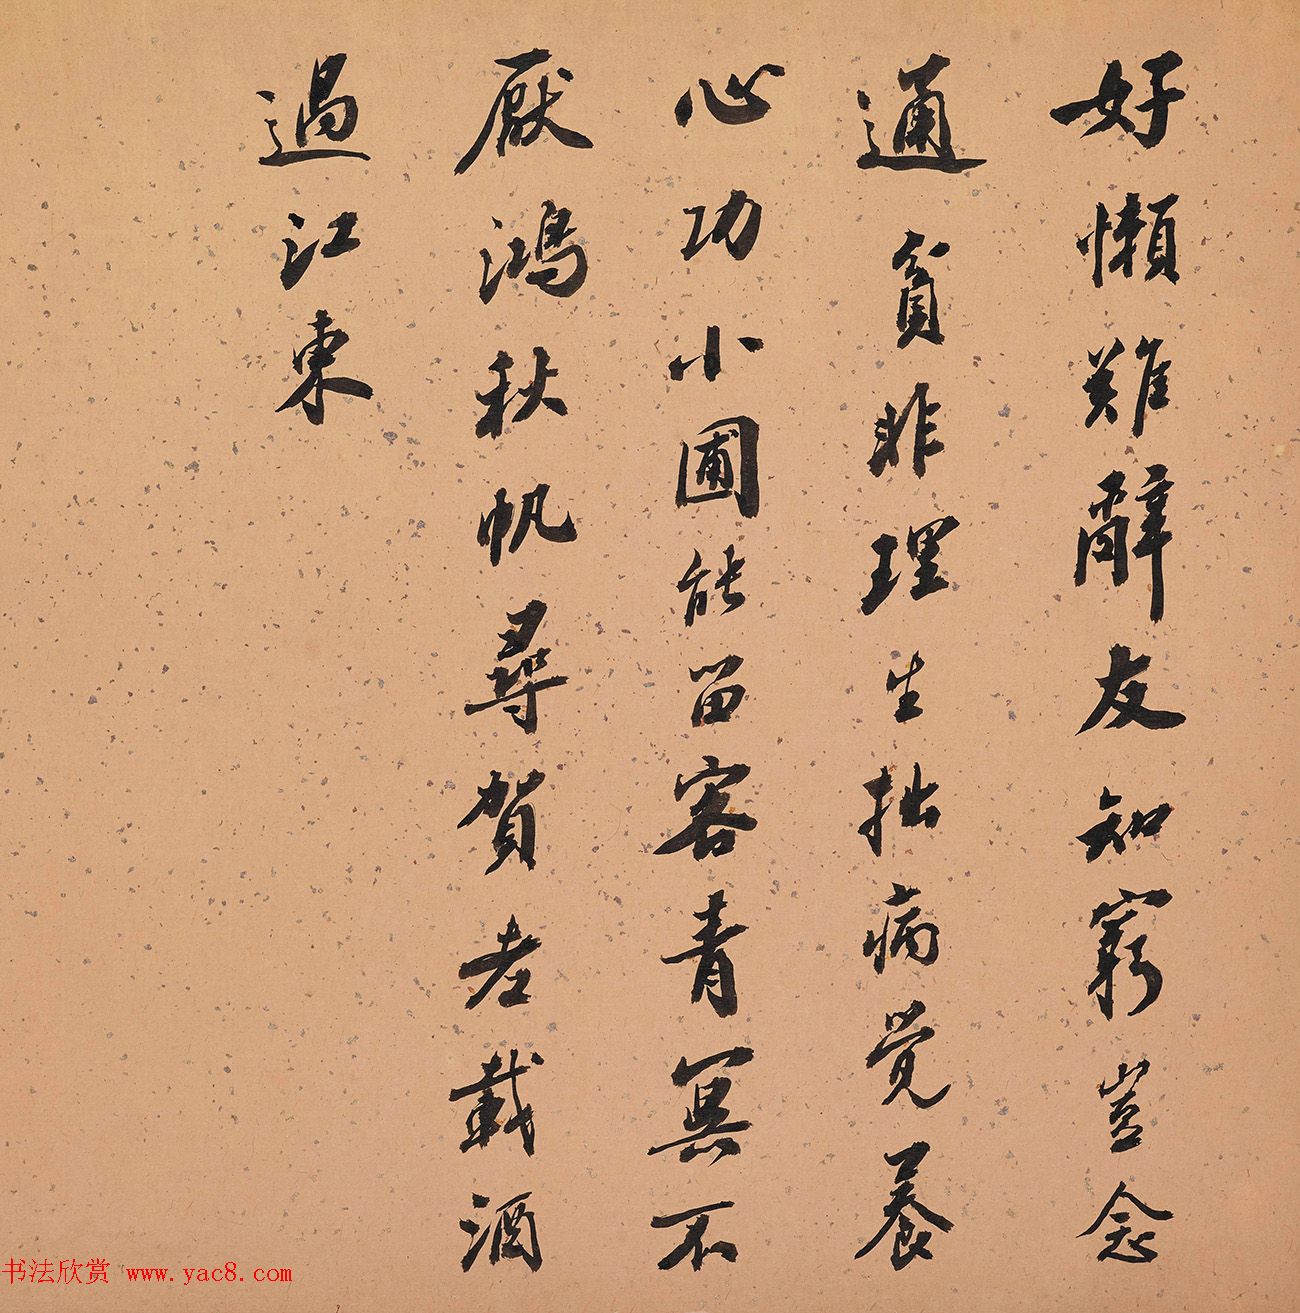 好懶難辭友知窮豈念
通貧非理生拙病覺養
心功小圃能留客青冥不
厭鴻秋帆尋賀老載酒
過江東
书法欣赏 www.yac8.com